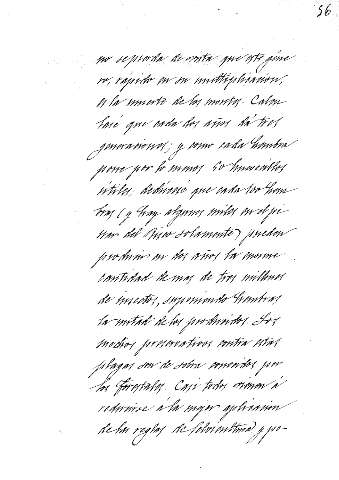 56
no se pierda de vista que este géne-
ro, rápido en su multiplicacion,
es la muerte de los montes. Calcu-
lase que cada dos años dá tres
generaciones; y como cada hembra
pone por lo menos 50 huevecillos
útiles dedúcese que cada 100 hem-
bras (y hay algunos miles en el pi-
nar del Risco solamente) pueden
producir en dos años la enorme
cantidad de mas de tres millones
de insectos, suponiendo hembras
la mitad de los producidos. Los
medios preservativos contra estas
plagas son de sobra conocidos por
los forestales. Casi todos vienen á
reducirse á la mejor aplicacion
de las reglas de Selvicultura, y pe-